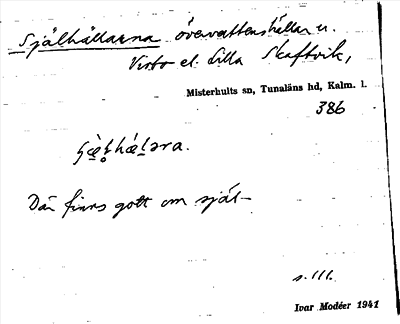 Själhällarna övervattenshällar v.
Virbo el. Lilla Skaftvik,
Misterhults sn, Tunaläns hd, Kalm. l.
386
Där finns gott om själ-
s. 111.
Ivar Modéer 1941